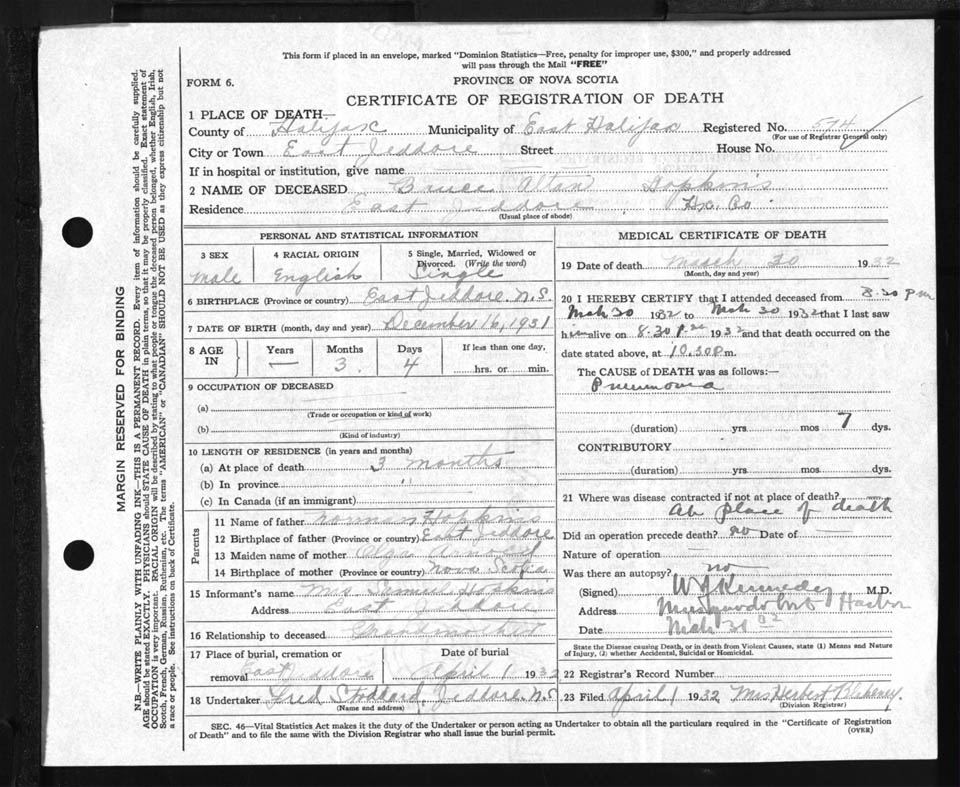 This form if placed in an envelope, marked "Dominion Statistics—Free, penalty for improper use, $300," and properly addressed
will pass through the Mail "FREE"
FORM 6.
PROVINCE OF NOVA SCOTIA
CERTIFICATE OF REGISTRATION OF DEATH
1 PLACE OF DEATH—
County of Halifax Municipality of East Halifax Registered No. 574
(For use of Registrar General only)
City or Town East Jeddore Street House No.
If in hospital or institution, give name
2 NAME OF DECEASED Bruce Alton Hopkins
Residence East Jeddore Hx. Co
(Usual place of abode)
PERSONAL AND STATISTICAL INFORMATION
3 SEX 4 RACIAL ORIGIN 5 Single, Married, Widowed or
Divorced. (Write the word)
Male English Single
6 BIRTHPLACE (Province or country) East Jeddore N.S.
7 DATE OF BIRTH (month, day and year) December 16, 1931
8 AGE IN Years Months Days If less than one day,
— 3 4 hrs. or min.
9 OCCUPATION OF DECEASED
(a)
(Trade or occupation or kind of work)
(b)
(Kind of industry)
10 LENGTH OF RESIDENCE (in years and months)
(a) At place of death 3 months
(b) In province "
(c) In Canada (if an immigrant)
Parents
11 Name of father Norman Hopkins
12 Birthplace of father (Province or country) East Jeddore
13 Maiden name of mother Olga
14 Birthplace of mother (Province or country) Nova Scotia
15 Informant's name Mrs Hopkins
Address East Jeddore
16 Relationship to deceased Grandmother
17 Place of burial, cremation or Date of burial
removal East April 1 1932
18 Undertaker Fred Stoddard, Jeddore, N.S.
(Name and address)
MEDICAL CERTIFICATE OF DEATH
19 Date of death March 30 1932
(Month, day and year)
20 I HEREBY CERTIFY that I attended deceased from 8.30 pm
Mch 30 1932 to Mch 30 1932 that I last saw
him alive on 8.30 P.m 1932 and that death occurred on the
date stated above, at 10.30 P.m.
The CAUSE of DEATH was as follows:—
Pneumonia
(duration) yrs mos 7 dys.
CONTRIBUTORY
(duration) yrs. mos dys.
21 Where was disease contracted if not at place of death?
At place of death
Did an operation precede death? no Date of —
Nature of operation —
Was there an autopsy? no
(Signed) W J Kennedy M.D.
Address Musquodobit Harbor
Date Mch 31 32
State the Disease causing Death, or in death from Violent Causes, state (1) Means and Nature
of Injury, (2) whether Accidental, Suicidal or Homicidal.
22 Registrar's Record Number
23 Filed April 1 1932 Mrs Herbert Blakeney.
(Division Registrar)
SEC. 46—Vital Statistics Act makes it the duty of the Undertaker or person acting as Undertaker to obtain all the particulars required in the "Certificate of Registration
of Death" and to file the same with the Division Registrar who shall issue the burial permit.
(OVER)
MARGIN RESERVED FOR BINDING
N.B.—WRITE PLAINLY WITH UNFADING INK—THIS IS A PERMANENT RECORD. Every item of information should be carefully supplied.
AGE should be stated EXACTLY. PHYSICIANS should STATE CAUSE OF DEATH in plain terms, so that it may be properly classified. Exact statement of
OCCUPATION is very important. RACIAL ORIGIN will be described by stating to what people or tongue the deceased person belonged, whether English, Irish,
Scotch, French, German, Russian, Ruthenian, etc. The terms "AMERICAN" or "CANADIAN" SHOULD NOT BE USED as they express citizenship but not
a race or people. See instructions on back of Certificate.